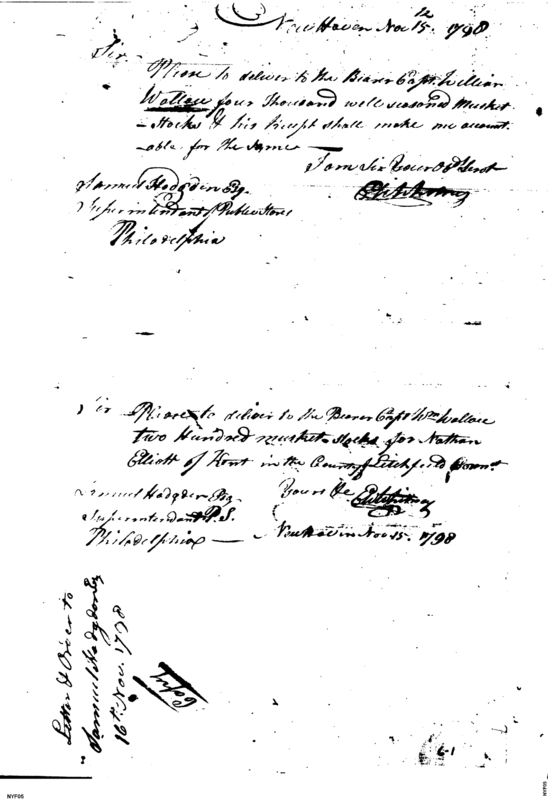 New Haven Nov 15. 1798
Sir
Please to deliver to the Bearer Capt. William
Wallace four Thousand well seasoned Musket
-Stocks & his Receipt shall make me account.
-able for the same —
I am Sir Your Obt Servt
Eli Whitney
Samuel Hodgden Esq.
Superintendant of Public Stores
Philadelphia
Sir Please to deliver to the Bearer Capt Wm Wallace
two Hundred musket-stocks for Nathan
Elliott of Kent in the County of Litchfield Connt.
Samuel Hodgden Esq. Yours &c E Whitney
Superintendant P.S.
Philadelphia — New Haven Nov 15. 1798
Letter & Order to
Samuel Hodgdon Esq
16th Nov. 1798
Copy
6-1
NYF05
NYF05